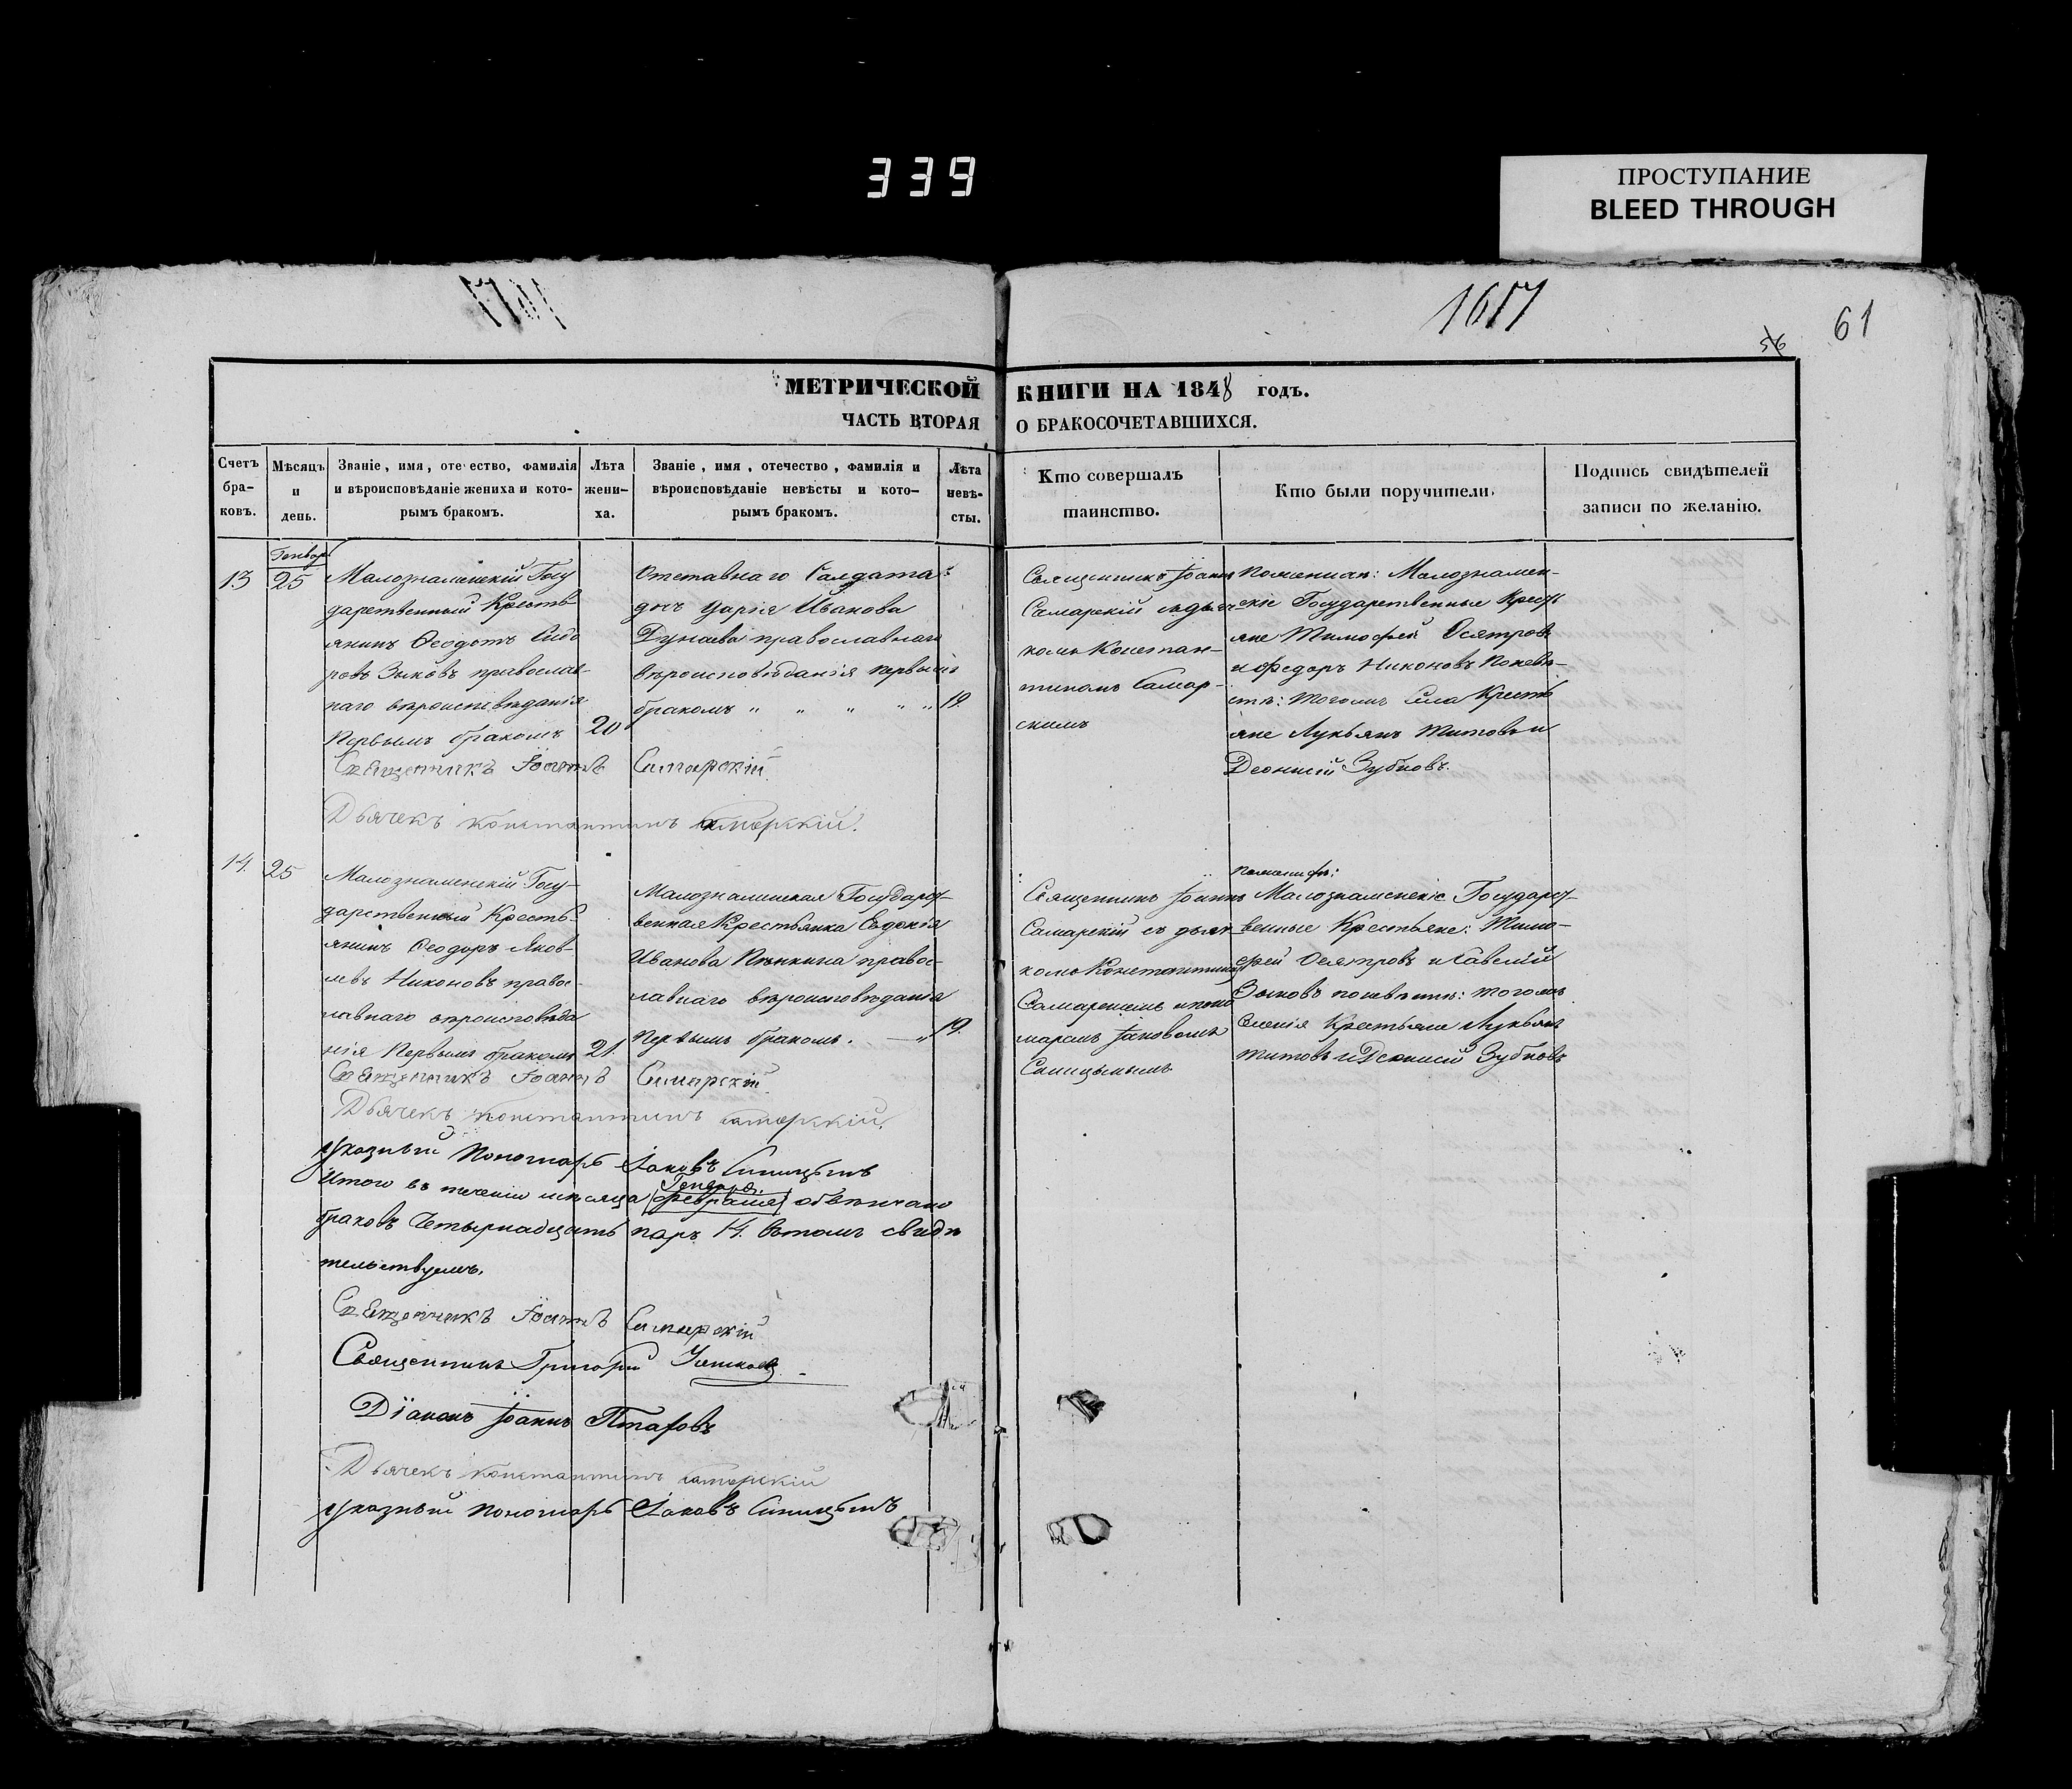 339
ПРОСТУПАНИЕ
BLEED THROUGH
1617
56
61
МЕТРИЧЕСКОЙ КНИГИ НА 1848 годъ.
ЧАСТЬ ВТОРАЯ О БРАКОСОЧЕТАВШИХСЯ.
Счетъ бра-
ковъ.
Мѣсяцъ
и
день.
Званіе, имя, отечество, фамилія
и вѣроисповѣданіе жениха и кото-
рымъ бракомъ.
Лѣта
жени-
ха.
Званіе, имя, отечество, фамилія и
вѣроисповѣданіе невѣсты и кото-
рымъ бракомъ.
Лѣта
невѣ-
сты.
Кто совершалъ
таинство.
Кто были поручители.
Подпись свидѣтелей
записи по желанію.
13
Генвар
25
Малознаменскій Госу
дарственный Кресть
янинъ Ѳеодотъ Сидо
ровъ Зыковъ православ-
наго вѣроисповѣданія
первымъ бракомъ
20
Отставнаго Салдата
дочь Дарія Иванова
Дунаева православнаго
вѣроисповѣданія первымъ
бракомъ " " " " "
19.
Священникъ Іоаннъ
Самарскій съ дьяч
комъ Констан-
тиномъ Самар-
скимъ
По женихѣ: Малознамен-
скіе Государственные Кресть
яне Тимофей Осятровъ
и Федоръ Никоновъ По невѣ-
стѣ: тогожъ Села Кресть
яне Лукьянъ Титовъ и
Деонисій Зубковъ.
Священникъ Іоаннъ Самарскій
Дьячекъ Константинъ Самарскій.
14.
25
Малознаменскій Госу-
дарственный Кресть-
янинъ Ѳеодоръ Яков-
левъ Никоновъ правос-
лавнаго вѣроисповѣда
нія первымъ бракомъ
21.
Малознаменская Государст-
венная Крестьянка Евдокія
Иванова Пѣнкина правос-
лавнаго вѣроисповѣданія
первымъ бракомъ. — "
19.
Священникъ Іоаннъ
Самарскій съ дьяч
комъ Константиномъ
Самарскимъ и поно
маремъ Іаковомъ
Синицынымъ
По женихѣ:
Малознаменскіе Государст-
венные Крестьяне: Тимо-
фей Осятровъ и Савелій
Зыковъ по невѣстѣ: тогожъ
Селенія Крестьяне Лукьянъ
Титовъ и Деонисій Зубковъ
Священникъ Іоаннъ Самарскій
Дьячекъ Константинъ Самарскій.
Указный Пономарь Іаковъ Синицынъ
Генваря.
Итого въ теченіи мѣсяца (февраля) обвѣнчано
браковъ Четырнадцать паръ 14. въ томъ свидѣ
тельствуемъ.
Священникъ Іоаннъ Самарскій
Священникъ Григорій
Діаконъ Іоаннъ Птаховъ
Дьячекъ Константинъ Самарскій
Указный Пономарь Іаковъ Синицынъ